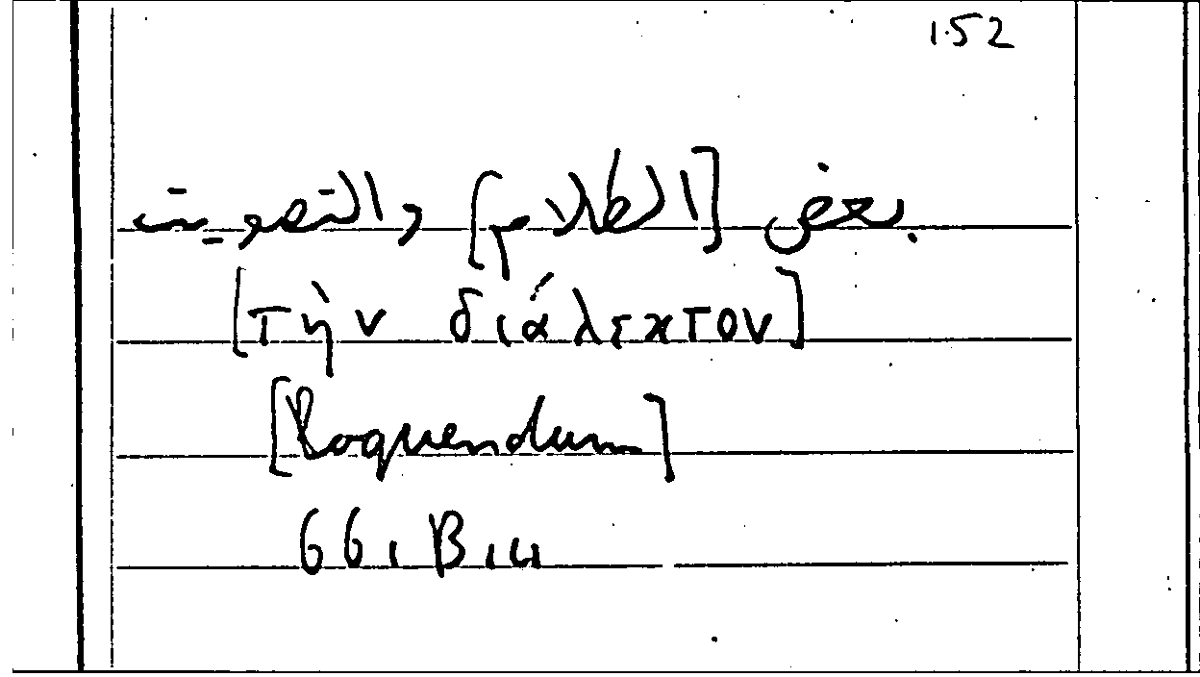 1.52
بعض [الكلام] والتصويت
[τὴν διάλεκτον]
[loquendum]
661 B 14